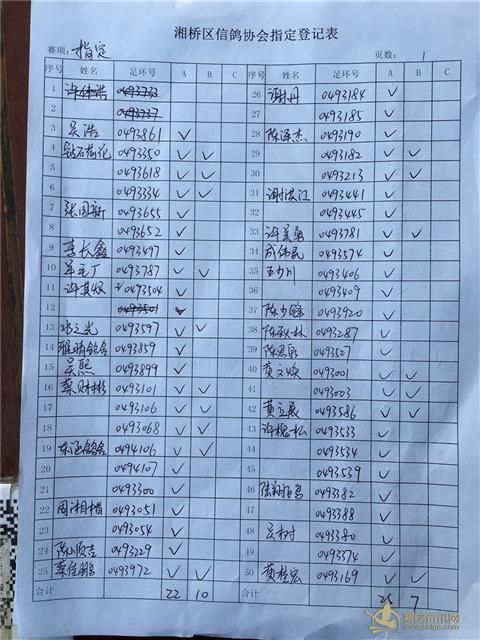 湘桥区信鸽协会指定登记表
赛项: 指定 页数: 1
序号 姓名 足环号 A B C 序号 姓名 足环号 A B C
1 0493733 26 谢丹 0493184 ✓
2 0493737 27 0493185 ✓
3 吴浩 0493861 ✓ 28 陈泽杰 0493190 ✓
4 钻石荷花 0493350 ✓ ✓ 29 0493182 ✓ ✓
5 0493618 ✓ ✓ 30 0493213 ✓ ✓
6 0493334 ✓ ✓ 31 谢洪江 0493441 ✓
7 张国新 0493655 ✓ 32 0493445 ✓
8 0493652 ✓ 33 许美勇 0493781 ✓ ✓
9 李长鑫 0493497 ✓ 34 成伟民 0493574 ✓
10 0493787 ✓ ✓ 35 0493406 ✓
11 许其炆 0493504 ✓ 36 0493409 ✓
12 0493501 ✓ 37 0493920 ✓
13 水之光 0493597 ✓ ✓ 38 陈秋林 0493287 ✓
14 雅晴鸽舍 0493859 ✓ 39 0493527 ✓
15 吴熙 0493899 ✓ 40 黄文焕 0493001 ✓ ✓
16 蔡财彬 0493101 ✓ ✓ 41 0493003 ✓ ✓
17 0493106 ✓ ✓ 42 黄立辰 0493586 ✓ ✓
18 0493068 ✓ ✓ 43 许槐松 0493533 ✓
19 0494106 ✓ ✓ 44 0493534 ✓
20 0494107 ✓ 45 0493539 ✓
21 0493300 ✓ 46 0493382 ✓
22 周湘楷 0493051 ✓ 47 0493388 ✓
23 0493054 ✓ 48 0493380 ✓
24 陈顺吉 0493229 ✓ 49 0493374 ✓
25 蔡佳鹏 0493972 ✓ ✓ 50 黄桂宏 0493169 ✓ ✓
合计 22 10 合计 25 7